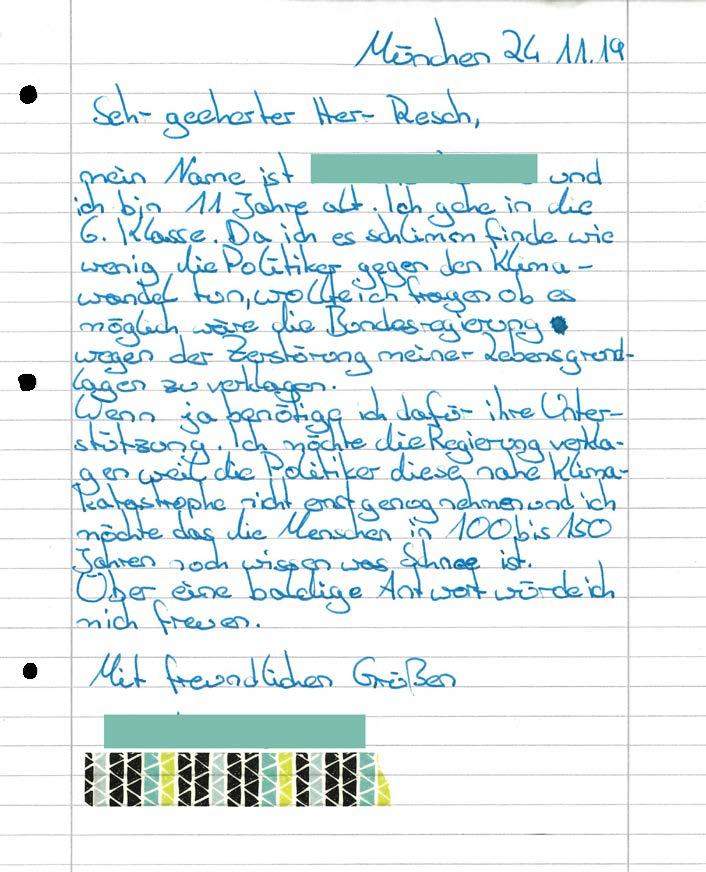 München 24.11.19
Sehr geeherter Herr Resch,
mein Name ist und
ich bin 11 Jahre alt. Ich gehe in die
6. Klasse. Da ich es schlimm finde wie
wenig die Politiker gegen den Klima-
wandel tun, wollte ich fragen ob es
möglich wäre die Bundesregierung
wegen der Zerstörung meiner Lebensgrund-
lagen zu verklagen.
Wenn ja benötige ich dafür ihre Unter-
stützung. Ich möchte die Regierung verkla-
gen weil die Politiker diese nahe Klima-
katastrophe nicht ernst genug nehmen und ich
möchte das die Menschen in 100 bis 150
Jahren noch wissen was Schnee ist.
Über eine baldige Antwort würde ich
mich freuen.
Mit freundlichen Grüßen